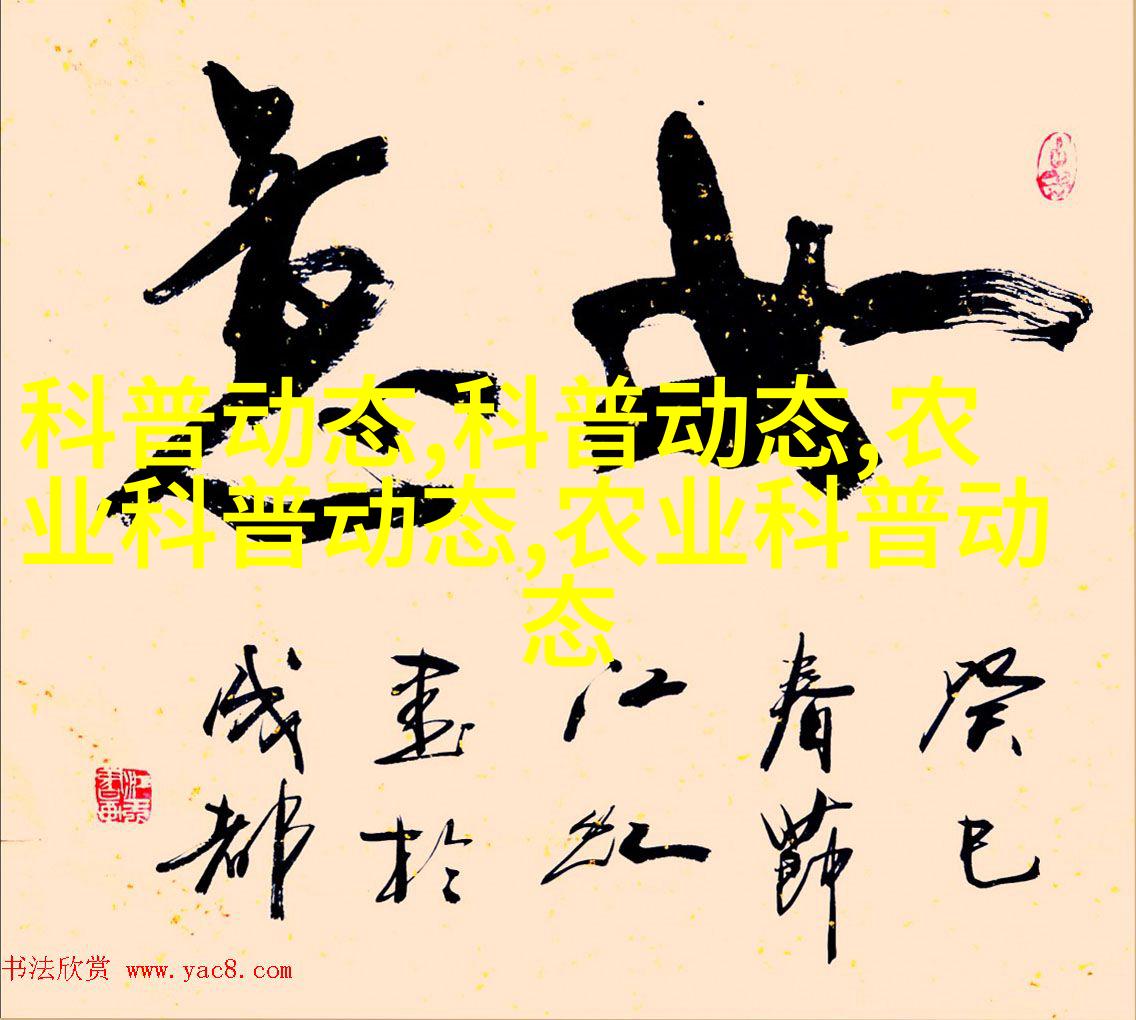 如意
科普动态,科普动态,农
业科普动态,农业科普动
态
癸巳
春节
江红
书于
成都
书法欣赏 www.yac8.com